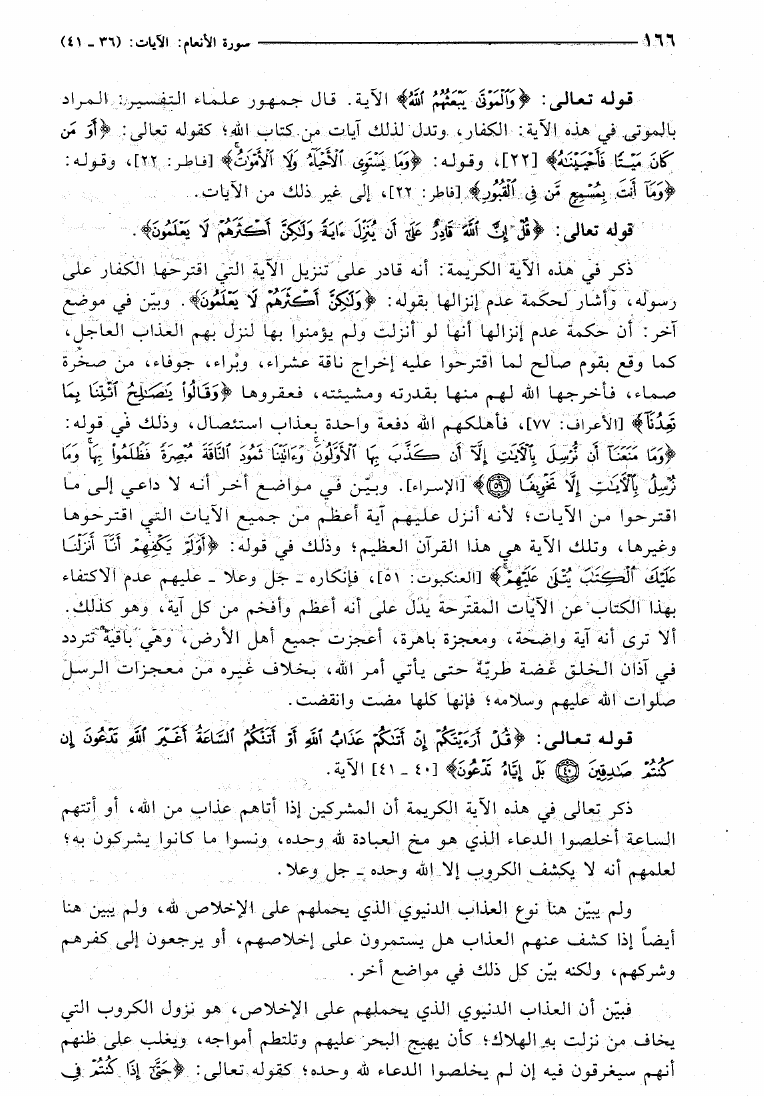 ١٦٦ سورة الأنعام: الآيات: (٣٦ ـ ٤١)
قوله تعالى: ﴿وَٱلْمَوْتَىٰ يَبْعَثُهُمُ ٱللَّهُ﴾ الآية. قال جمهور علماء التفسير: المراد
بالموتى في هذه الآية: الكفار، وتدل لذلك آيات من كتاب الله؛ كقوله تعالى: ﴿أَوَ مَن
كَانَ مَيْتًا فَأَحْيَيْنَٰهُ﴾ [٢٢]، وقوله: ﴿وَمَا يَسْتَوِى ٱلْأَحْيَآءُ وَلَا ٱلْأَمْوَٰتُ﴾ [فاطر: ٢٢]، وقوله:
﴿وَمَآ أَنتَ بِمُسْمِعٍ مَّن فِى ٱلْقُبُورِ﴾ [فاطر: ٢٢]، إلى غير ذلك من الآيات.
قوله تعالى: ﴿قُلْ إِنَّ ٱللَّهَ قَادِرٌ عَلَىٰٓ أَن يُنَزِّلَ ءَايَةً وَلَٰكِنَّ أَكْثَرَهُمْ لَا يَعْلَمُونَ﴾.
ذكر في هذه الآية الكريمة: أنه قادر على تنزيل الآية التي اقترحها الكفار على
رسوله، وأشار لحكمة عدم إنزالها بقوله: ﴿وَلَٰكِنَّ أَكْثَرَهُمْ لَا يَعْلَمُونَ﴾. وبيّن في موضع
آخر: أن حكمة عدم إنزالها أنها لو أنزلت ولم يؤمنوا بها لنزل بهم العذاب العاجل،
كما وقع بقوم صالح لما اقترحوا عليه إخراج ناقة عشراء، وبراء، جوفاء، من صخرة
صماء، فأخرجها الله لهم منها بقدرته ومشيئته، فعقروها ﴿وَقَالُوا۟ يَٰصَٰلِحُ ٱئْتِنَا بِمَا
تَعِدُنَآ﴾ [الأعراف: ٧٧]، فأهلكهم الله دفعة واحدة بعذاب استئصال، وذلك في قوله:
﴿وَمَا مَنَعَنَآ أَن نُّرْسِلَ بِٱلْءَايَٰتِ إِلَّآ أَن كَذَّبَ بِهَا ٱلْأَوَّلُونَ وَءَاتَيْنَا ثَمُودَ ٱلنَّاقَةَ مُبْصِرَةً فَظَلَمُوا۟ بِهَا وَمَا
نُرْسِلُ بِٱلْءَايَٰتِ إِلَّا تَخْوِيفًا ٥٩﴾ [الإسراء]. وبيّن في مواضع أخر أنه لا داعي إلى ما
اقترحوا من الآيات؛ لأنه أنزل عليهم آية أعظم من جميع الآيات التي اقترحوها
وغيرها، وتلك الآية هي هذا القرآن العظيم؛ وذلك في قوله: ﴿أَوَلَمْ يَكْفِهِمْ أَنَّآ أَنزَلْنَا
عَلَيْكَ ٱلْكِتَٰبَ يُتْلَىٰ عَلَيْهِمْ﴾ [العنكبوت: ٥١]، فإنكاره ـ جل وعلا ـ عليهم عدم الاكتفاء
بهذا الكتاب عن الآيات المقترحة يدل على أنه أعظم وأفخم من كل آية، وهو كذلك.
ألا ترى أنه آية واضحة، ومعجزة باهرة، أعجزت جميع أهل الأرض، وهي باقية تتردد
في آذان الخلق غضة طريّة حتى يأتي أمر الله، بخلاف غيره من معجزات الرسل
صلوات الله عليهم وسلامه؛ فإنها كلها مضت وانقضت.
قوله تعالى: ﴿قُلْ أَرَءَيْتَكُمْ إِنْ أَتَىٰكُمْ عَذَابُ ٱللَّهِ أَوْ أَتَتْكُمُ ٱلسَّاعَةُ أَغَيْرَ ٱللَّهِ تَدْعُونَ إِن
كُنتُمْ صَٰدِقِينَ ٤٠ بَلْ إِيَّاهُ تَدْعُونَ﴾ [٤٠ ـ ٤١] الآية.
ذكر تعالى في هذه الآية الكريمة أن المشركين إذا أتاهم عذاب من الله، أو أتتهم
الساعة أخلصوا الدعاء الذي هو مخ العبادة لله وحده، ونسوا ما كانوا يشركون به؛
لعلمهم أنه لا يكشف الكروب إلا الله وحده ـ جل وعلا.
ولم يبيّن هنا نوع العذاب الدنيوي الذي يحملهم على الإخلاص لله، ولم يبين هنا
أيضاً إذا كشف عنهم العذاب هل يستمرون على إخلاصهم، أو يرجعون إلى كفرهم
وشركهم، ولكنه بيّن كل ذلك في مواضع أخر.
فبيّن أن العذاب الدنيوي الذي يحملهم على الإخلاص، هو نزول الكروب التي
يخاف من نزلت به الهلاك؛ كأن يهيج البحر عليهم وتلتطم أمواجه، ويغلب على ظنهم
أنهم سيغرقون فيه إن لم يخلصوا الدعاء لله وحده؛ كقوله تعالى: ﴿حَتَّىٰٓ إِذَا كُنتُمْ فِى